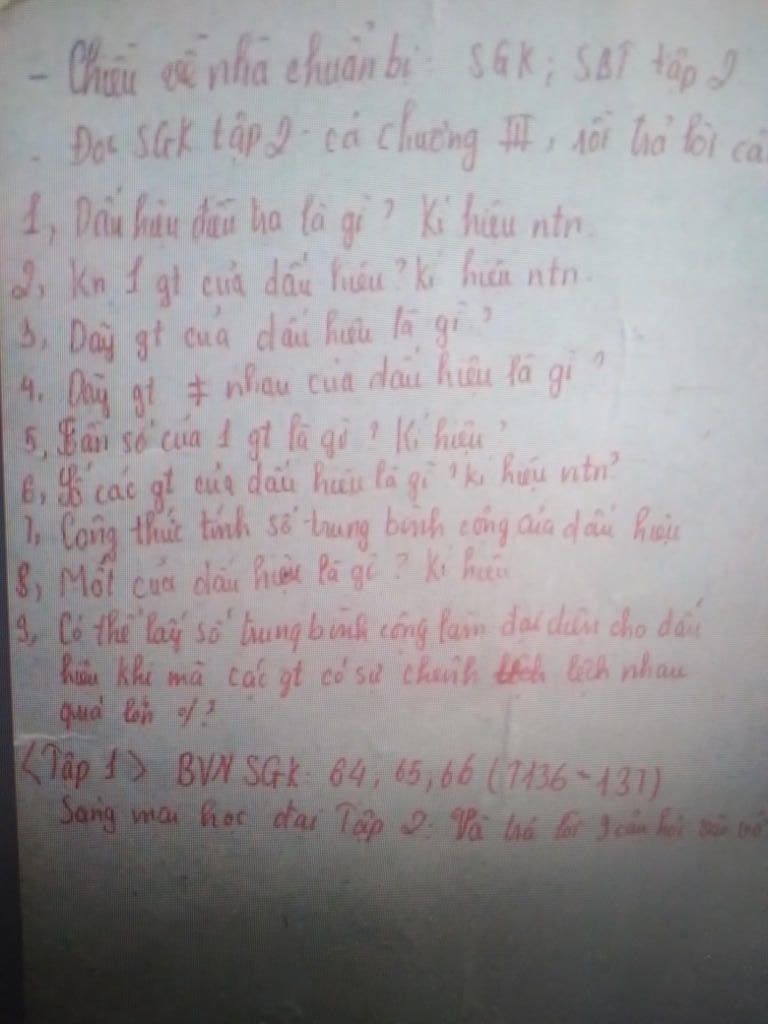 - Chiều về nhà chuẩn bị: SGK; SBT tập 2
. Đọc SGK tập 2 - cả chương III, rồi trả lời câ
1, Dấu hiệu điều tra là gì? Kí hiệu ntn.
2, Kn 1 gt của dấu hiệu? kí hiệu ntn.
3, Dãy gt của dấu hiệu là gì?
4. Dãy gt ≠ nhau của dấu hiệu là gì?
5, Tần số của 1 gt là gì? Kí hiệu?
6, Số các gt của dấu hiệu là gì? kí hiệu ntn?
7, Công thức tính số trung bình cộng của dấu hiệu
8, Mốt của dấu hiệu là gì? Kí hiệu
9, Có thể lấy số trung bình cộng làm đại diện cho dấu
hiệu khi mà các gt có sự chênh lệch nhau
quá lớn o/?
<Tập 1> BVN SGK: 64, 65, 66 (T136-137)
Sáng mai học đại Tập 2: Và trả lời 9 câu hỏi vào vở